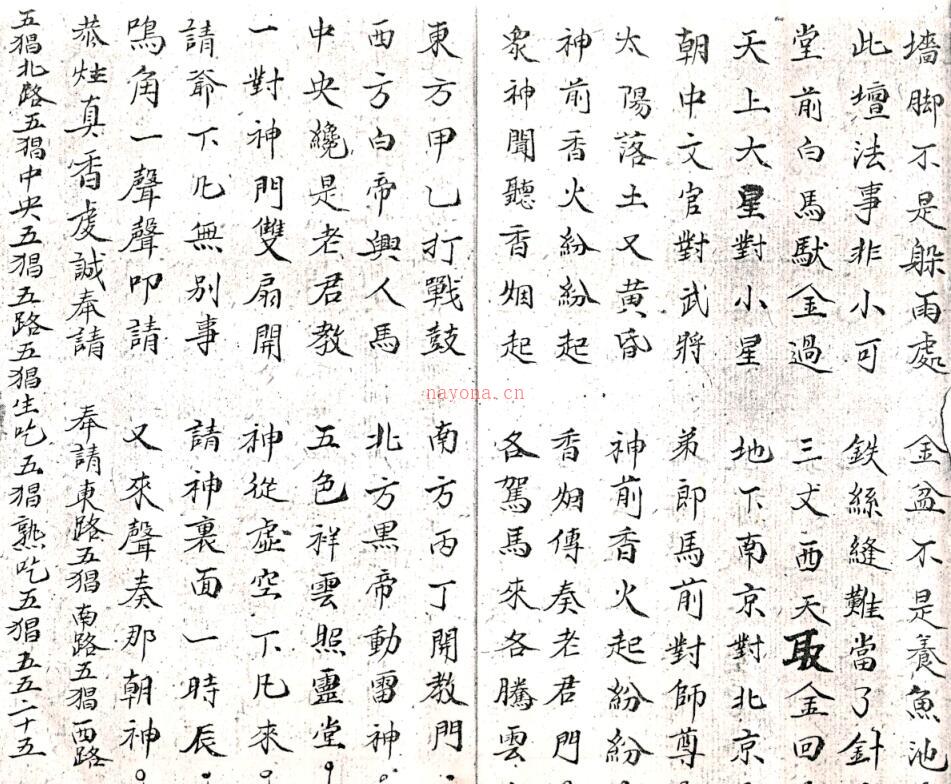 墻脚不是躲雨處 金盆不是養魚池
此壇法事非小可 鉄絲縫難當了針
堂前白馬馱金過 三丈西天取金回
天上大星對小星 地下南京對北京
朝中文官對武將 弟郎馬前對師尊
太陽落土又黄昏 神前香火起紛紛
神前香火紛紛起 香烟傳奏老君門
眾神聞聽香烟起 各駕馬來各騰雲
東方甲乙打戰鼓 南方丙丁開教門
西方白帝興人馬 北方黒帝動雷神
中央纔是老君教 五色祥雲照靈堂
一對神門雙扇開 神從虛空下凡來
請爺下凡無别事 請神裏面一時辰
鳴角一聲聲叩請 又來聲奏那朝神
恭炷真香虔誠奉請 奉請東路五猖南路五猖西路
五猖北路五猖中央五猖五路五猖生吃五猖熟吃五猖五五二十五
nayona.cn